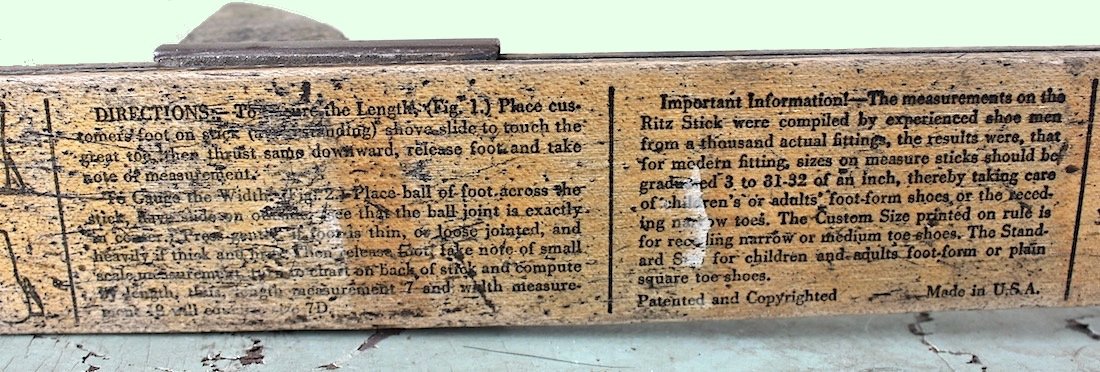 DIRECTIONS:— To the Length, (Fig. 1.) Place cus-
tomers foot on stick standing) shove slide to touch the
great toe, then thrust same downward, release foot and take
note of measurement.
To Gauge the Width, (Fig. 2.) Place ball of foot across the
stick, slide on see that the ball joint is exactly
Press gently if foot is thin, or loose jointed, and
heavily if thick and Then release foot, take note of small
scale measurement, to chart on back of stick and compute
by length, thus, length measurement 7 and width measure-
ment 19 will 7D.
Important Information!—The measurements on the
Ritz Stick were compiled by experienced shoe men
from a thousand actual fittings, the results were, that
for modern fitting, sizes on measure sticks should be
3 to 31-32 of an inch, thereby taking care
of children's or adults' foot-form shoes or the reced-
ing narrow toes. The Custom Size printed on rule is
for receding narrow or medium toe shoes. The Stand-
ard for children and adults foot-form or plain
square toe shoes.
Patented and Copyrighted Made in U.S.A.